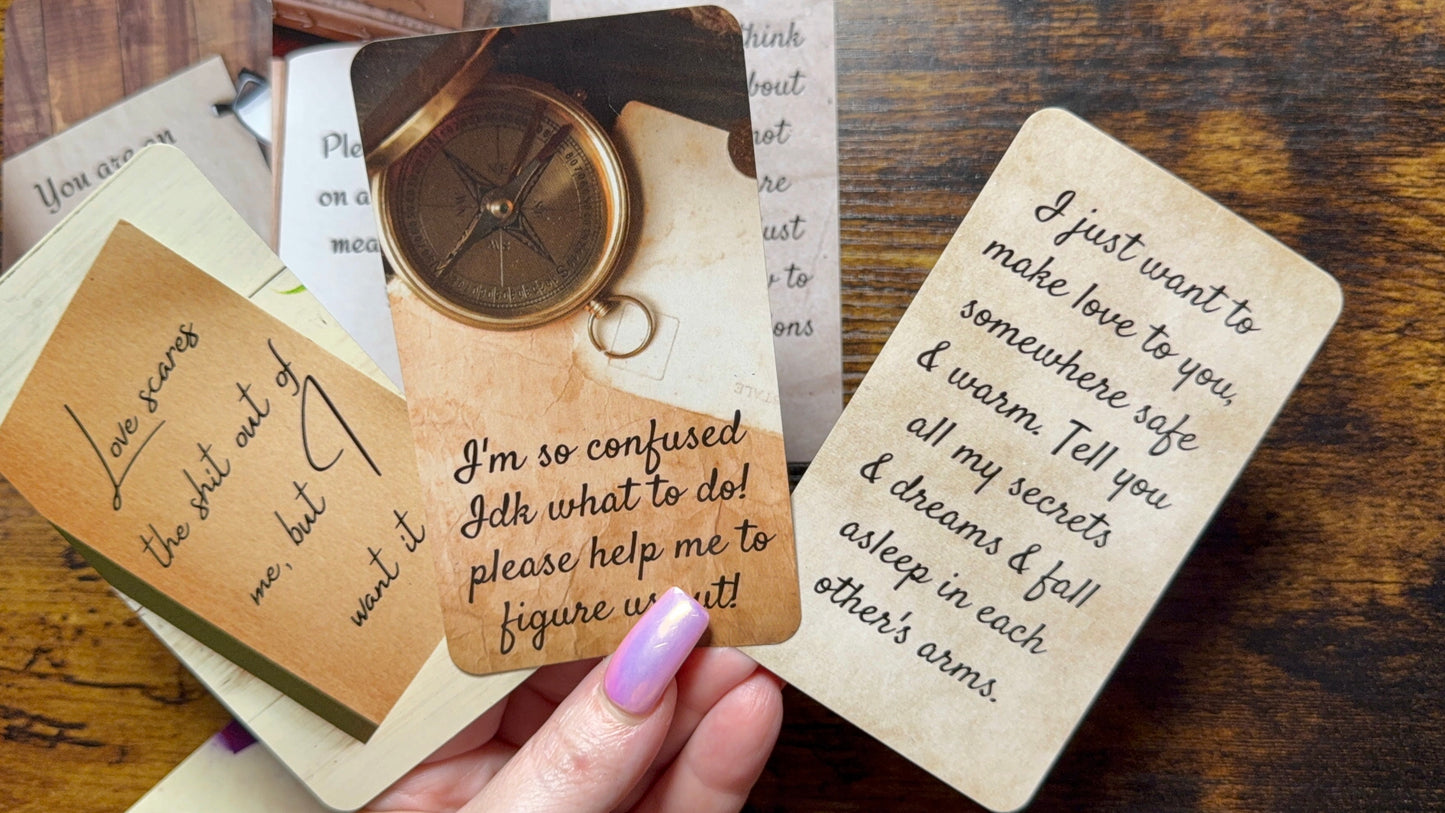 You are on
Ple
on a
mea
think
bout
not
re
ust
to
ons
Love scares
the shit out of
me, but I
want it
I'm so confused
Idk what to do!
please help me to
figure us out!
STALE
I just want to
make love to you,
somewhere safe
& warm. Tell you
all my secrets
& dreams & fall
asleep in each
other's arms.